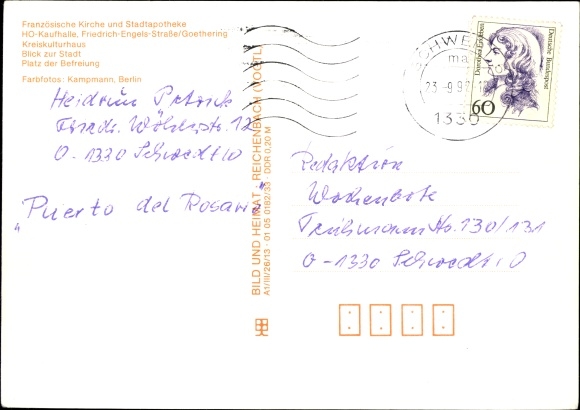 Französische Kirche und Stadtapotheke
HO-Kaufhalle, Friedrich-Engels-Straße/Goethering
Kreiskulturhaus
Blick zur Stadt
Platz der Befreiung
Farbfotos: Kampmann, Berlin
Heidrun
Friedr. Wöhlerstr. 12
O-1330 Schwedt/O
"Puerto del Rosario"
BILD UND HEIMAT · REICHENBACH (VOGTL)
A1/III/26/13 · 01 05 0182/33 · DDR 0,20 M
SCHWEDT
1330
Dorothea Erxleben
Deutsche Bundespost
60
Redaktion
Wochenbote
130/131
O-1330 Schwedt/O